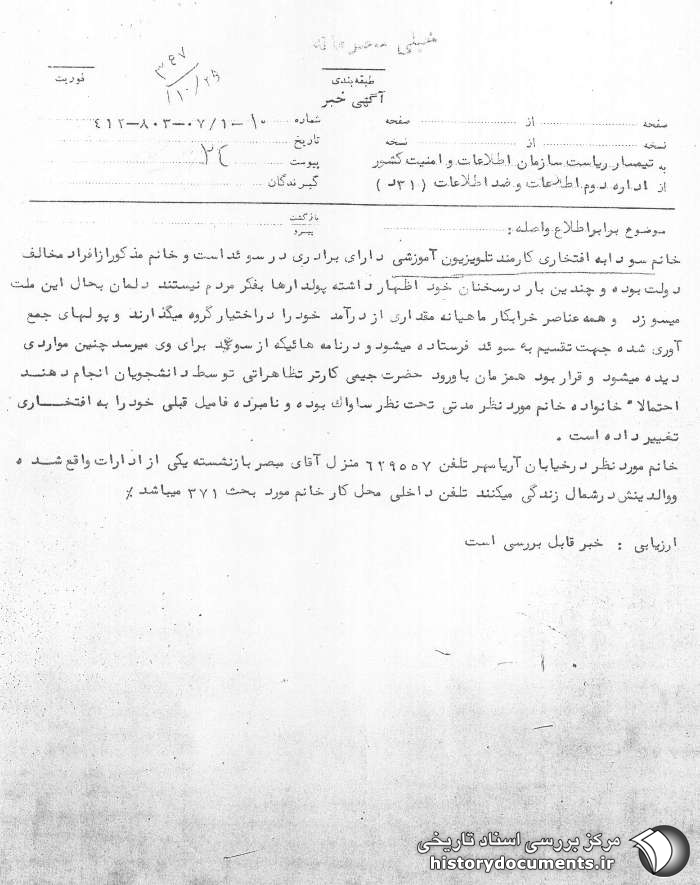 خیلی محرمانه
طبقه‌بندی
فوریت
آگهی خبر
۳۶۷
۱۱۰/۲۵
صفحه از صفحه
شماره ۱۰-۱/۰۷-۸۰۳-۴۱۲
نسخه از نسخه
تاریخ
به تیمسار ریاست سازمان اطلاعات و امنیت کشور
پیوست
از اداره دوم اطلاعات و ضد اطلاعات (۳۱د)
گیرندگان
موضوع برابر اطلاع واصله:
بازگشت
پیرو
خانم سودابه افتخاری کارمند تلویزیون آموزشی دارای برادری در سوئد است و خانم مذکور از افراد مخالف
دولت بوده و چندین بار در سخنان خود اظهار داشته پولدارها بفکر مردم نیستند دلمان بحال این ملت
میسوزد و همه عناصر خرابکار ماهیانه مقداری از درآمد خود را در اختیار گروه میگذارند و پولهای جمع
آوری شده جهت تقسیم به سوئد فرستاده میشود و در نامه هائیکه از سوئد برای وی میرسد چنین مواردی
دیده میشود و قرار بود همزمان با ورود حضرت جیمی کارتر تظاهراتی توسط دانشجویان انجام دهند
احتمالا" خانواده خانم مورد نظر مدتی تحت نظر ساواک بوده و نامبرده فامیل قبلی خود را به افتخاری
تغییر داده است .
خانم مورد نظر در خیابان آریامهر تلفن ۶۲۹۵۵۷ منزل آقای مبصر بازنشسته یکی از ادارات واقع شده
و والدینش در شمال زندگی میکنند تلفن داخلی محل کار خانم مورد بحث ۳۷۱ میباشد ٪
ارزیابی : خبر قابل بررسی است
مرکز بررسی اسناد تاریخی
historydocuments.ir